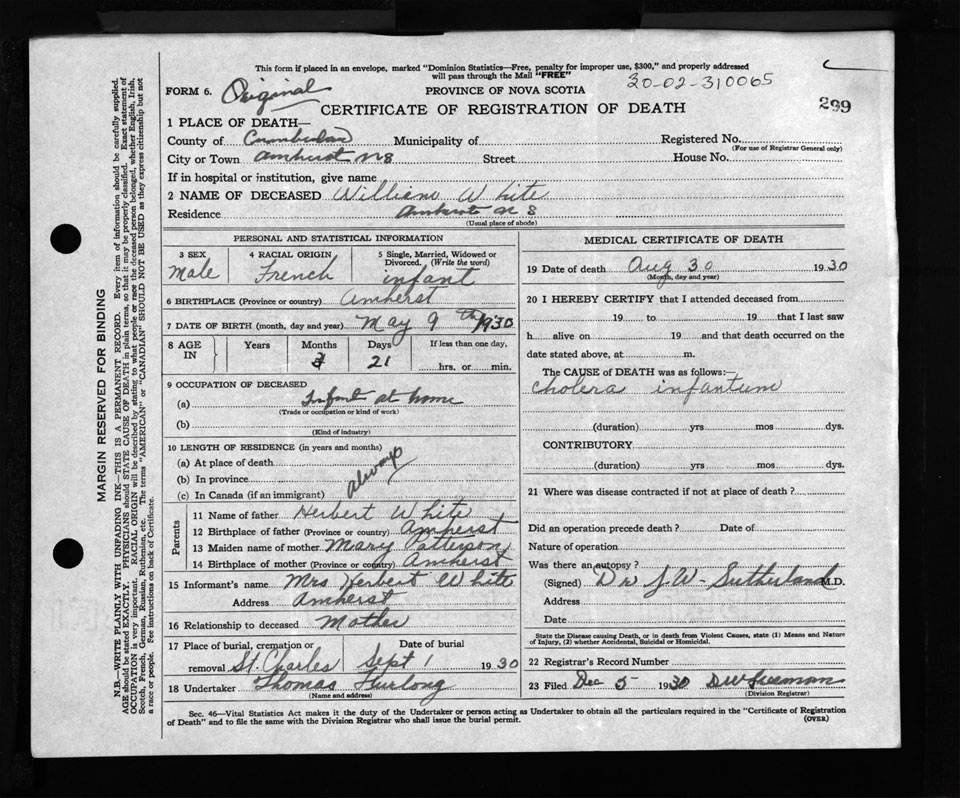 This form if placed in an envelope, marked "Dominion Statistics—Free, penalty for improper use, $300," and properly addressed
will pass through the Mail "FREE"
30-02-310065
FORM 6. Original
PROVINCE OF NOVA SCOTIA
299
CERTIFICATE OF REGISTRATION OF DEATH
1 PLACE OF DEATH—
County of Municipality of Registered No.
(For use of Registrar General only)
City or Town Amherst NS Street House No.
If in hospital or institution, give name
2 NAME OF DECEASED William White
Residence Amherst N S
(Usual place of abode)
PERSONAL AND STATISTICAL INFORMATION
3 SEX
Male
4 RACIAL ORIGIN
French
5 Single, Married, Widowed or
Divorced. (Write the word)
infant
6 BIRTHPLACE (Province or country) Amherst
7 DATE OF BIRTH (month, day and year) May 9th 1930
8 AGE
IN
Years
Months
3
Days
21
If less than one day,
hrs. or min.
9 OCCUPATION OF DECEASED
(a) Infant at home
(Trade or occupation or kind of work)
(b)
(Kind of industry)
10 LENGTH OF RESIDENCE (in years and months)
(a) At place of death
(b) In province
(c) In Canada (if an immigrant)
always
Parents
11 Name of father Herbert White
12 Birthplace of father (Province or country) Amherst
13 Maiden name of mother Mary Patterson
14 Birthplace of mother (Province or country) Amherst
15 Informant's name Mrs Herbert White
Address Amherst
16 Relationship to deceased Mother
17 Place of burial, cremation or Date of burial
removal St. Charles Sept 1 1930
18 Undertaker Thomas Furlong
(Name and address)
MEDICAL CERTIFICATE OF DEATH
19 Date of death Aug 30 1930
(Month, day and year)
20 I HEREBY CERTIFY that I attended deceased from
19 to 19 that I last saw
h alive on 19 and that death occurred on the
date stated above, at m.
The CAUSE of DEATH was as follows:—
Cholera infantum
(duration) yrs mos dys.
CONTRIBUTORY
(duration) yrs mos dys.
21 Where was disease contracted if not at place of death?
Did an operation precede death? Date of
Nature of operation
Was there an autopsy?
(Signed) Dr J.W. Sutherland M.D.
Address
Date
State the Disease causing Death, or in death from Violent Causes, state (1) Means and Nature
of Injury, (2) whether Accidental, Suicidal or Homicidal.
22 Registrar's Record Number
23 Filed Dec 5 1930
(Division Registrar)
Sec. 46—Vital Statistics Act makes it the duty of the Undertaker or person acting as Undertaker to obtain all the particulars required in the "Certificate of Registration
of Death" and to file the same with the Division Registrar who shall issue the burial permit.
(OVER)
MARGIN RESERVED FOR BINDING
N.B.—WRITE PLAINLY WITH UNFADING INK—THIS IS A PERMANENT RECORD. Every item of information should be carefully supplied.
AGE should be stated EXACTLY. PHYSICIANS should STATE CAUSE OF DEATH in plain terms, so that it may be properly classified. Exact statement of
OCCUPATION is very important. RACIAL ORIGIN will be described by stating to what people or race the deceased person belonged, whether English, Irish,
Scotch, French, German, Russian, Ruthenian, etc. The terms "AMERICAN" or "CANADIAN" SHOULD NOT BE USED as they express citizenship but not
a race or people. See instructions on back of Certificate.